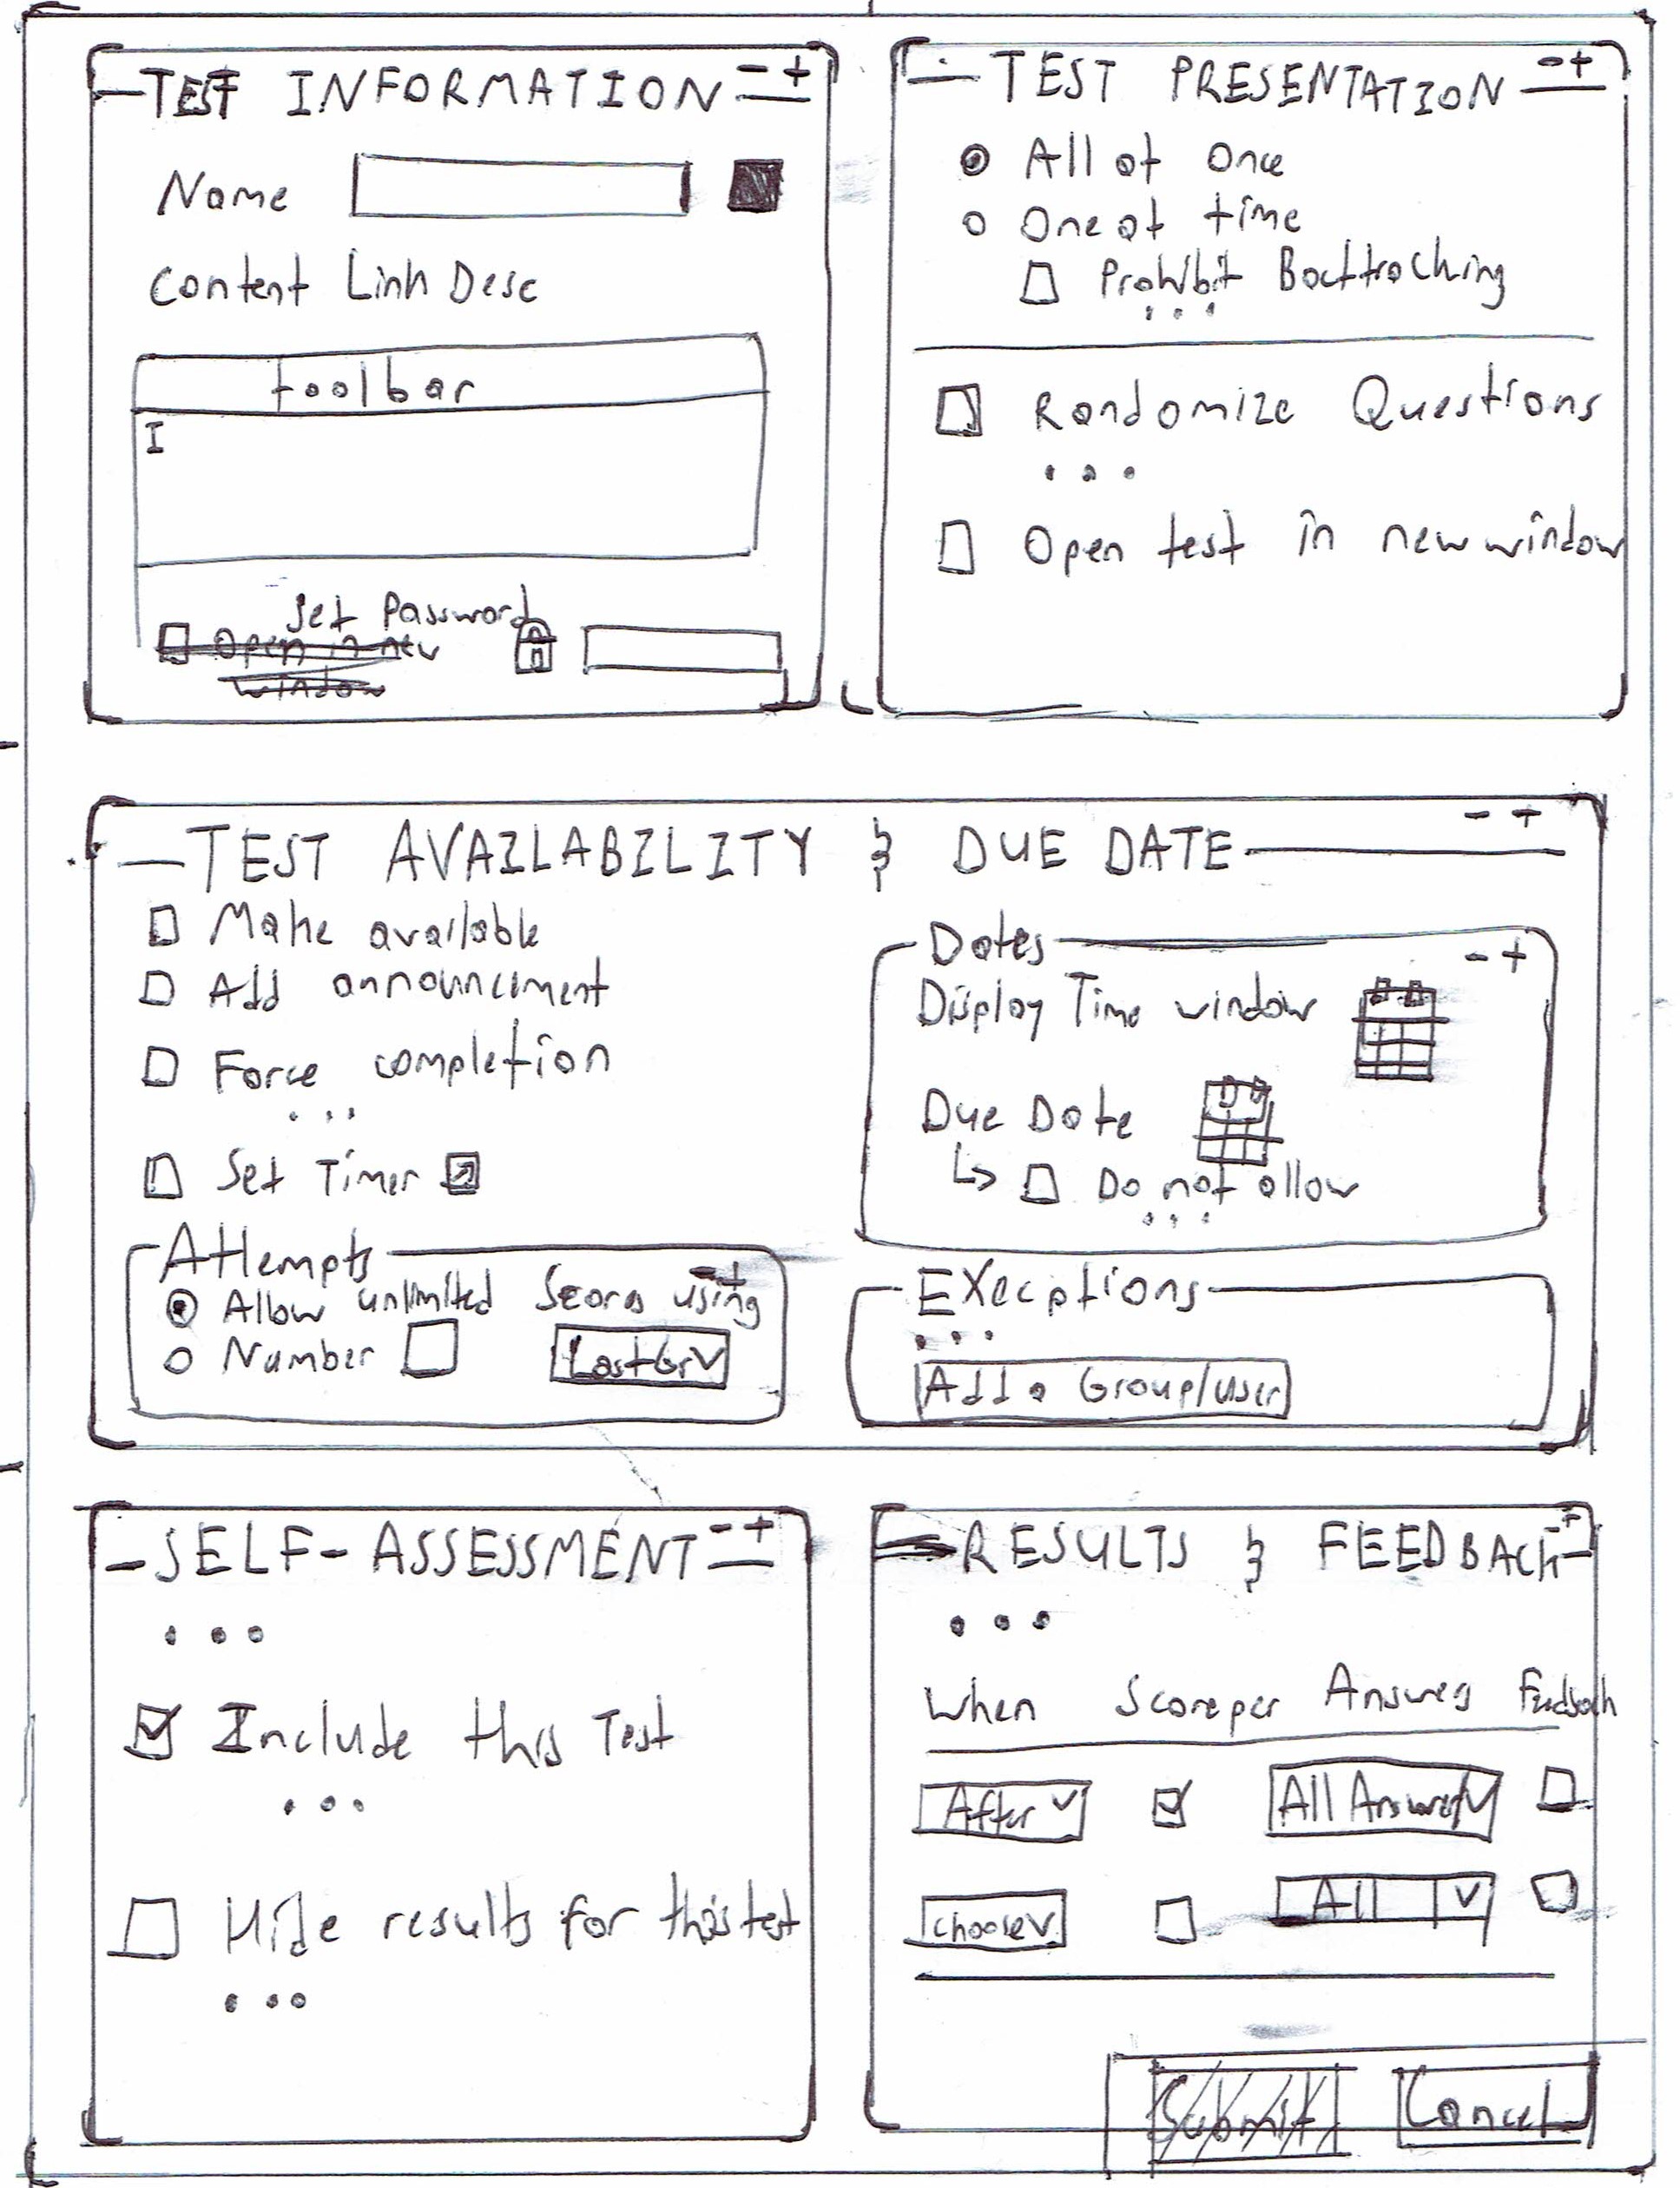 TEST INFORMATION - +
Name
Content Link Desc
toolbar
I
Set Password
Open in new
window
TEST PRESENTATION - +
All at Once
One at time
Prohibit Backtracking
...
Randomize Questions
...
Open test in new window
TEST AVAILABILITY & DUE DATE - +
Make available
Add announcement
Force completion
...
Set Timer
Attempts - +
Allow unlimited Score using
Number Last Gr
Dates - +
Display Time window
Due Date
Do not allow
...
Execptions
...
Add a Group/User
SELF-ASSESSMENT - +
...
Include this Test
...
Hide results for this test
...
RESULTS & FEEDBACK - +
...
When Score per Answers Feedback
After All Answers
choose All
Submit Cancel